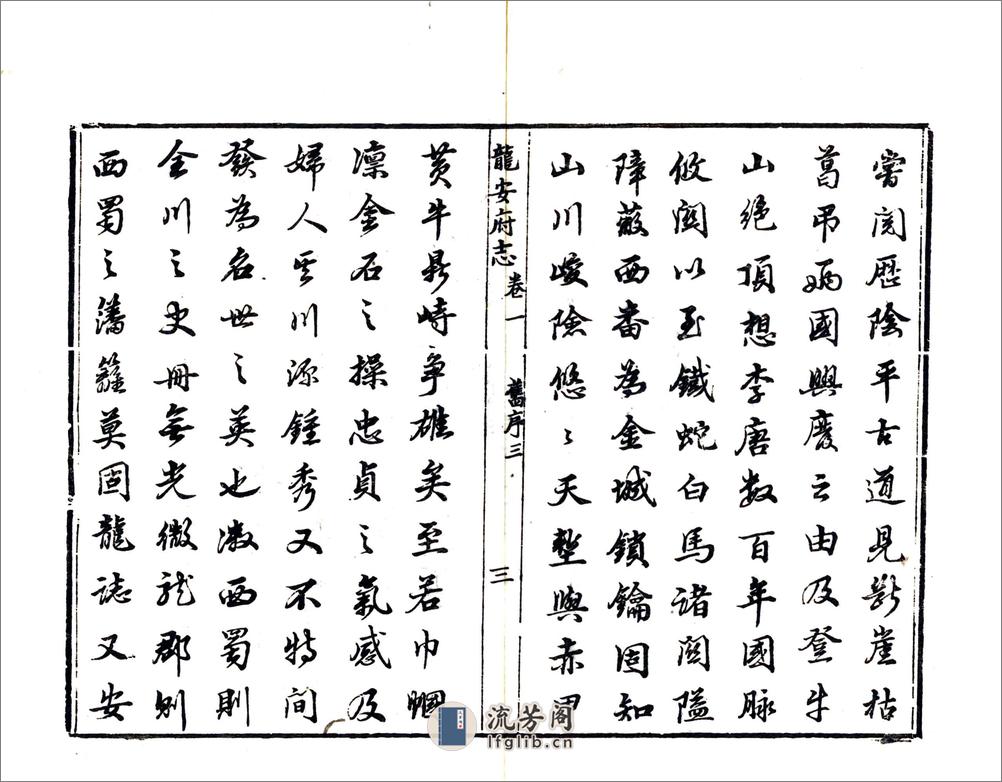 嘗閲歷陰平古道見斷崖枯
葛弔國興廢云由及登牛
山絶頂想李唐數百年國脉
攸關以至鐵蛇白馬諸關隘
障蔽西番為金城鎖鑰固知
山川峻險悠〻天塹與赤甲
龍安府志 卷一 舊序三 三
黄牛鼎峙爭雄矣至若巾幗
凜金石之操忠貞之氣感及
婦人其川源鍾秀又不特間
發為名世之英也微西蜀則
全川之史冊無光微龍郡則
西蜀之藩籬莫固龍誌又安
流芳阁
lfglib.cn